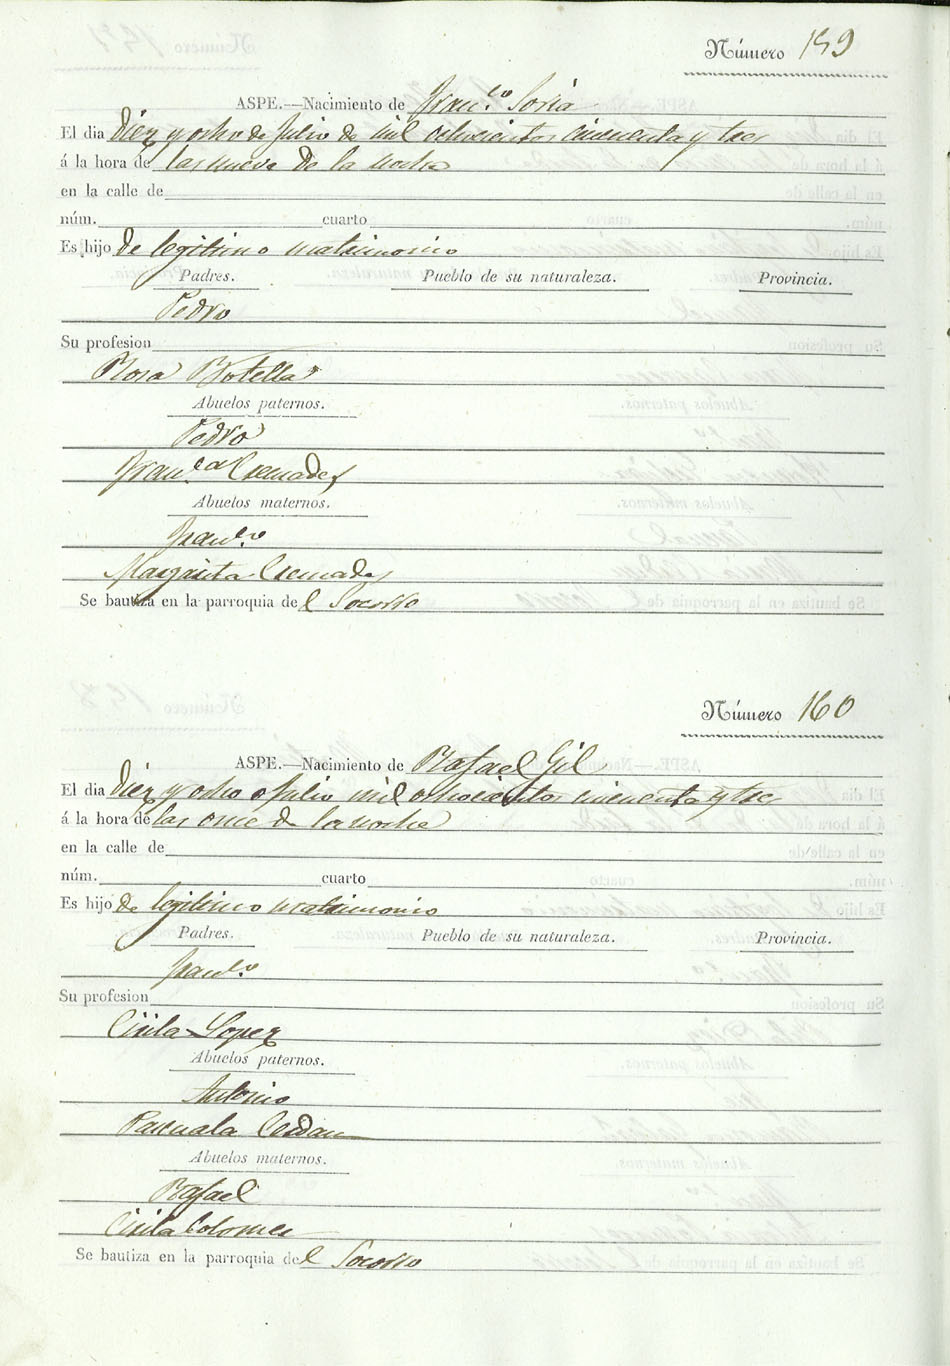 Número 159
ASPE.—Nacimiento de Fran.co Soria
El dia diez y ocho de Julio de mil ochocientos cincuenta y tres
á la hora de las nueve de la noche
en la calle de
núm. cuarto
Es hijo de legitimo matrimonio
Padres. Pueblo de su naturaleza. Provincia.
Pedro
Su profesion
Rosa Botella
Abuelos paternos.
Pedro
Fran.ca Cremades
Abuelos maternos.
Fran.co
Margarita Cremades
Se bautiza en la parroquia del Socorro
Número 160
ASPE.—Nacimiento de Rafael Gil
El dia diez y ocho Julio mil ochocientos cincuenta y tres
á la hora de las once de la noche
en la calle de
núm. cuarto
Es hijo de legitimo matrimonio
Padres. Pueblo de su naturaleza. Provincia.
Fran.co
Su profesion
Cirila Lopez
Abuelos paternos.
Antonio
Pascuala Cerdan
Abuelos maternos.
Rafael
Cirila Colomer
Se bautiza en la parroquia del Socorro